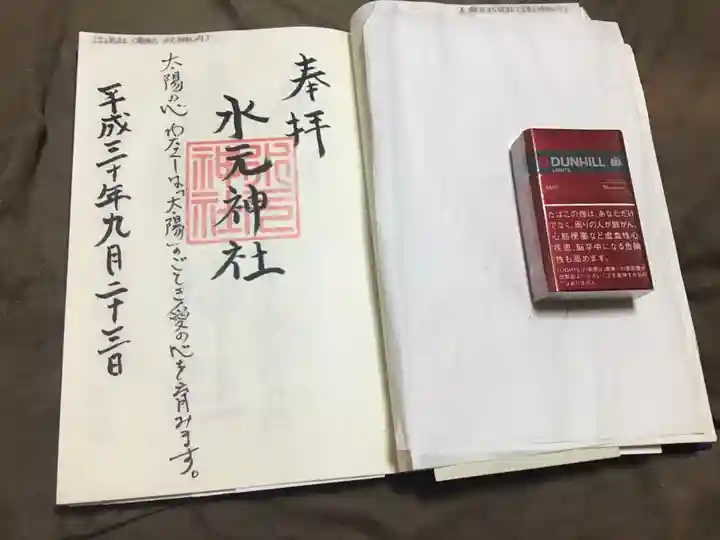 奉拝
水元神社
水元
神社
太陽の心 わたくしは「太陽」のごとき愛の心を育みます。
平成三十年九月二十三日
DUNHILL
LIGHTS
たばこの煙は、あなただけ
でなく、周りの人が肺がん、
心筋梗塞など虚血性心
疾患、脳卒中になる危険
性も高めます。